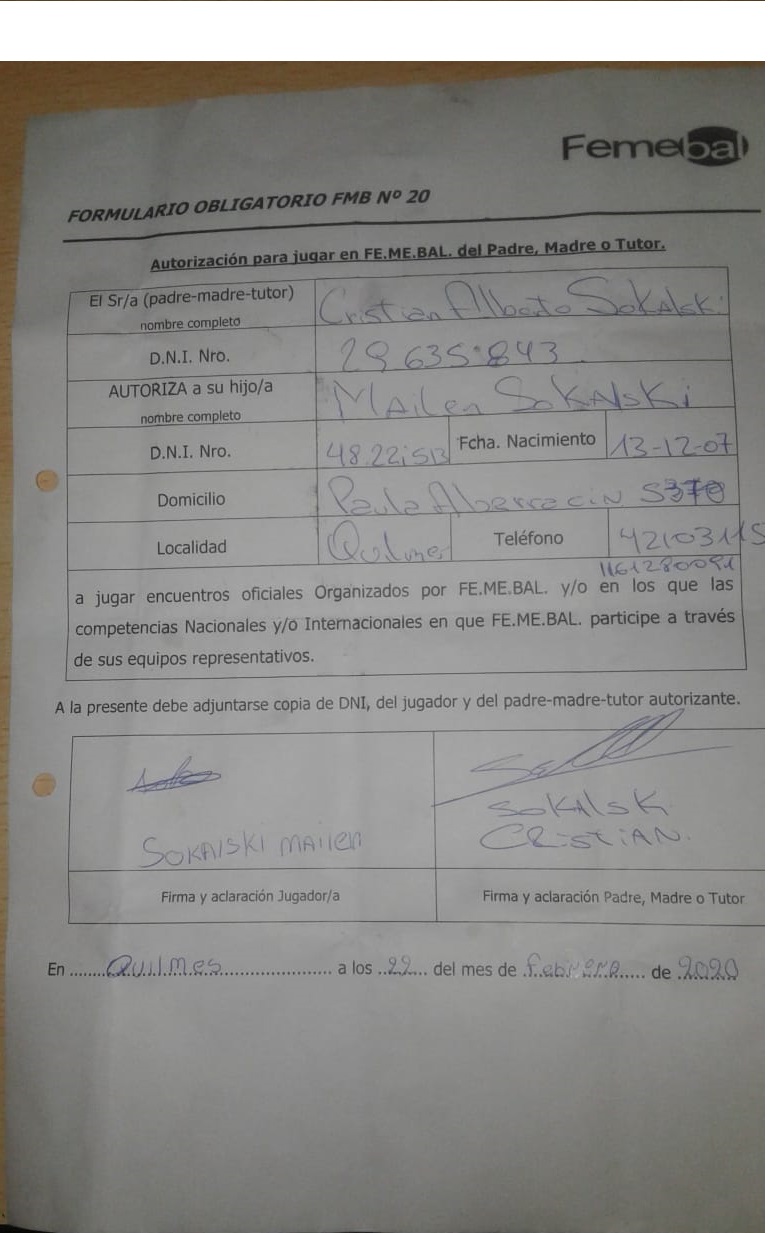 Femebal
FORMULARIO OBLIGATORIO FMB Nº 20
Autorización para jugar en FE.ME.BAL. del Padre, Madre o Tutor.
El Sr/a (padre-madre-tutor) nombre completo Cristian Alberto Sokalski
D.N.I. Nro. 29.635.843
AUTORIZA a su hijo/a nombre completo Mailen Sokalski
D.N.I. Nro. Fcha. Nacimiento 13-12-07
Domicilio Paula Alberracin
Localidad Quilmes Teléfono 42103115
1161280091
a jugar encuentros oficiales Organizados por FE.ME.BAL. y/o en los que las
competencias Nacionales y/o Internacionales en que FE.ME.BAL. participe a través
de sus equipos representativos.
A la presente debe adjuntarse copia de DNI, del jugador y del padre-madre-tutor autorizante.
SOKALSKI MAILEN
SOKALSK
CRISTIAN.
Firma y aclaración Jugador/a Firma y aclaración Padre, Madre o Tutor
En ........Quilmes........................ a los ..22.... del mes de .febrero..... de .2020